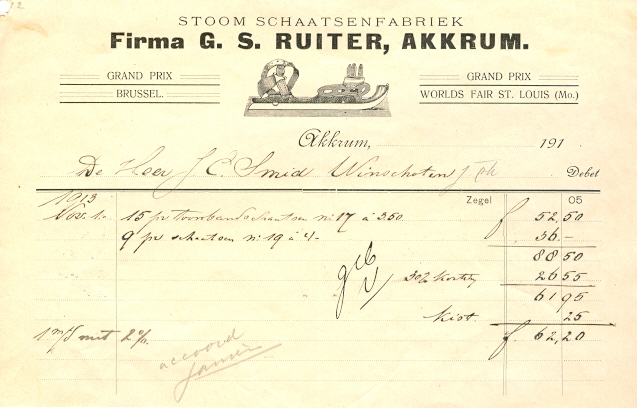 12
STOOM SCHAATSENFABRIEK
Firma G. S. RUITER, AKKRUM.
GRAND PRIX
BRUSSEL.
GRAND PRIX
WORLDS FAIR ST. LOUIS (Mo.)
Akkrum, 191
De Heer J C. Smid Winschoten Debet
1913 Zegel 05
Nov. 1. 15 pr toonbandschaatsen no 17 à 3.50 f. 52,50
9 pr schaatsen no 19 à 4.- 36.-
88 50
30% korting 26 55
61 95
kist. 25
1 m/d met 2%. f. 62,20
accoord